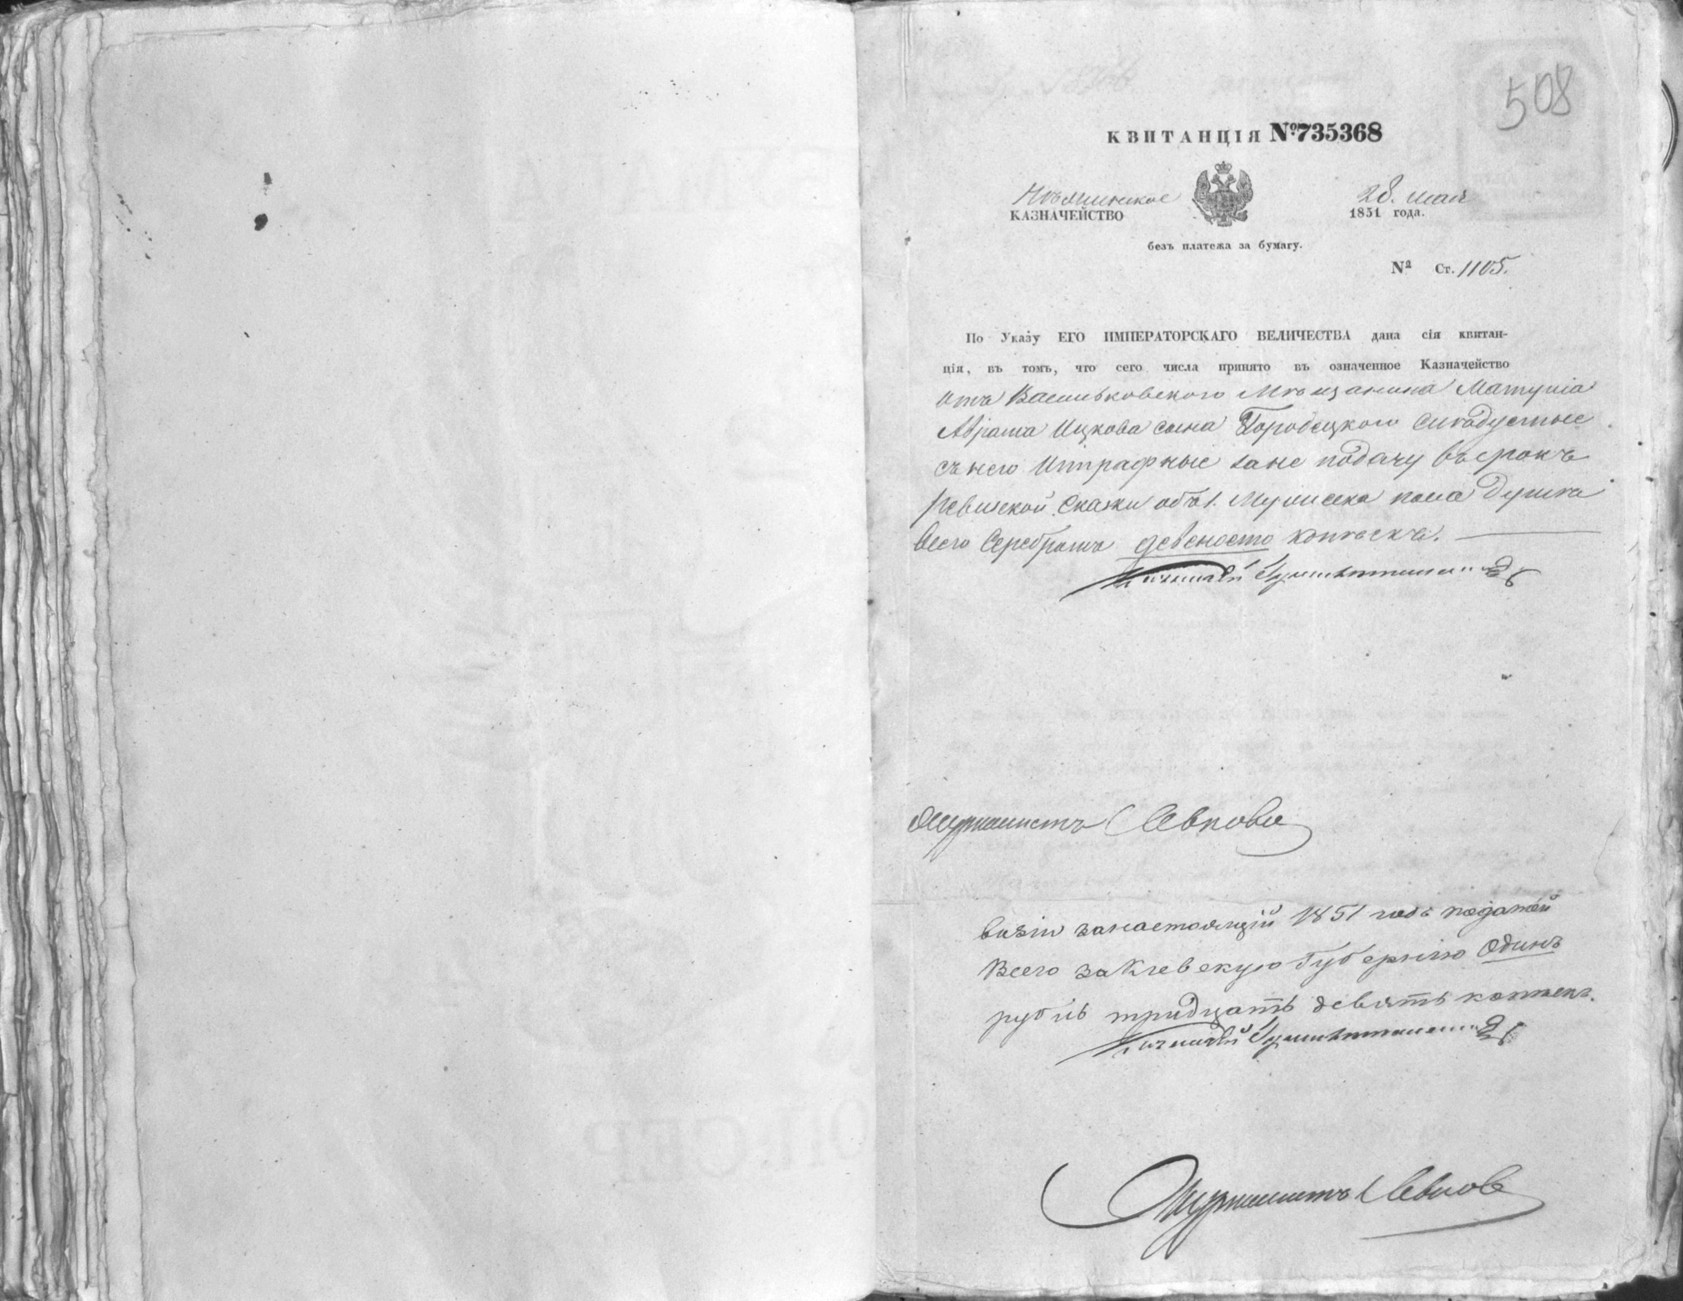 508
КВИТАНЦІЯ №735368
28. мая
КАЗНАЧЕЙСТВО
1851 года.
безъ платежа за бумагу.
№ Ст. 1105.
По Указу ЕГО ИМПЕРАТОРСКАГО ВЕЛИЧЕСТВА дана сія квитан-
ція, въ томъ, что сего числа принято въ означенное Казначейство
отъ Васильковского Мѣщанина
Аврама Ицкова сына Городецкого слѣдуемые
съ него Штрафные за не подачу въ срокъ
Ревизской Скаски объ 1. Мужеска пола душѣ
всего Серебромъ девеносто копѣекъ.
Казначей
Журналистъ
за настоящій 1851 годъ податей
Всего за Кіевскую Губернію Одинъ
рубль тридцать девять копѣекъ.
Казначей
Журналистъ